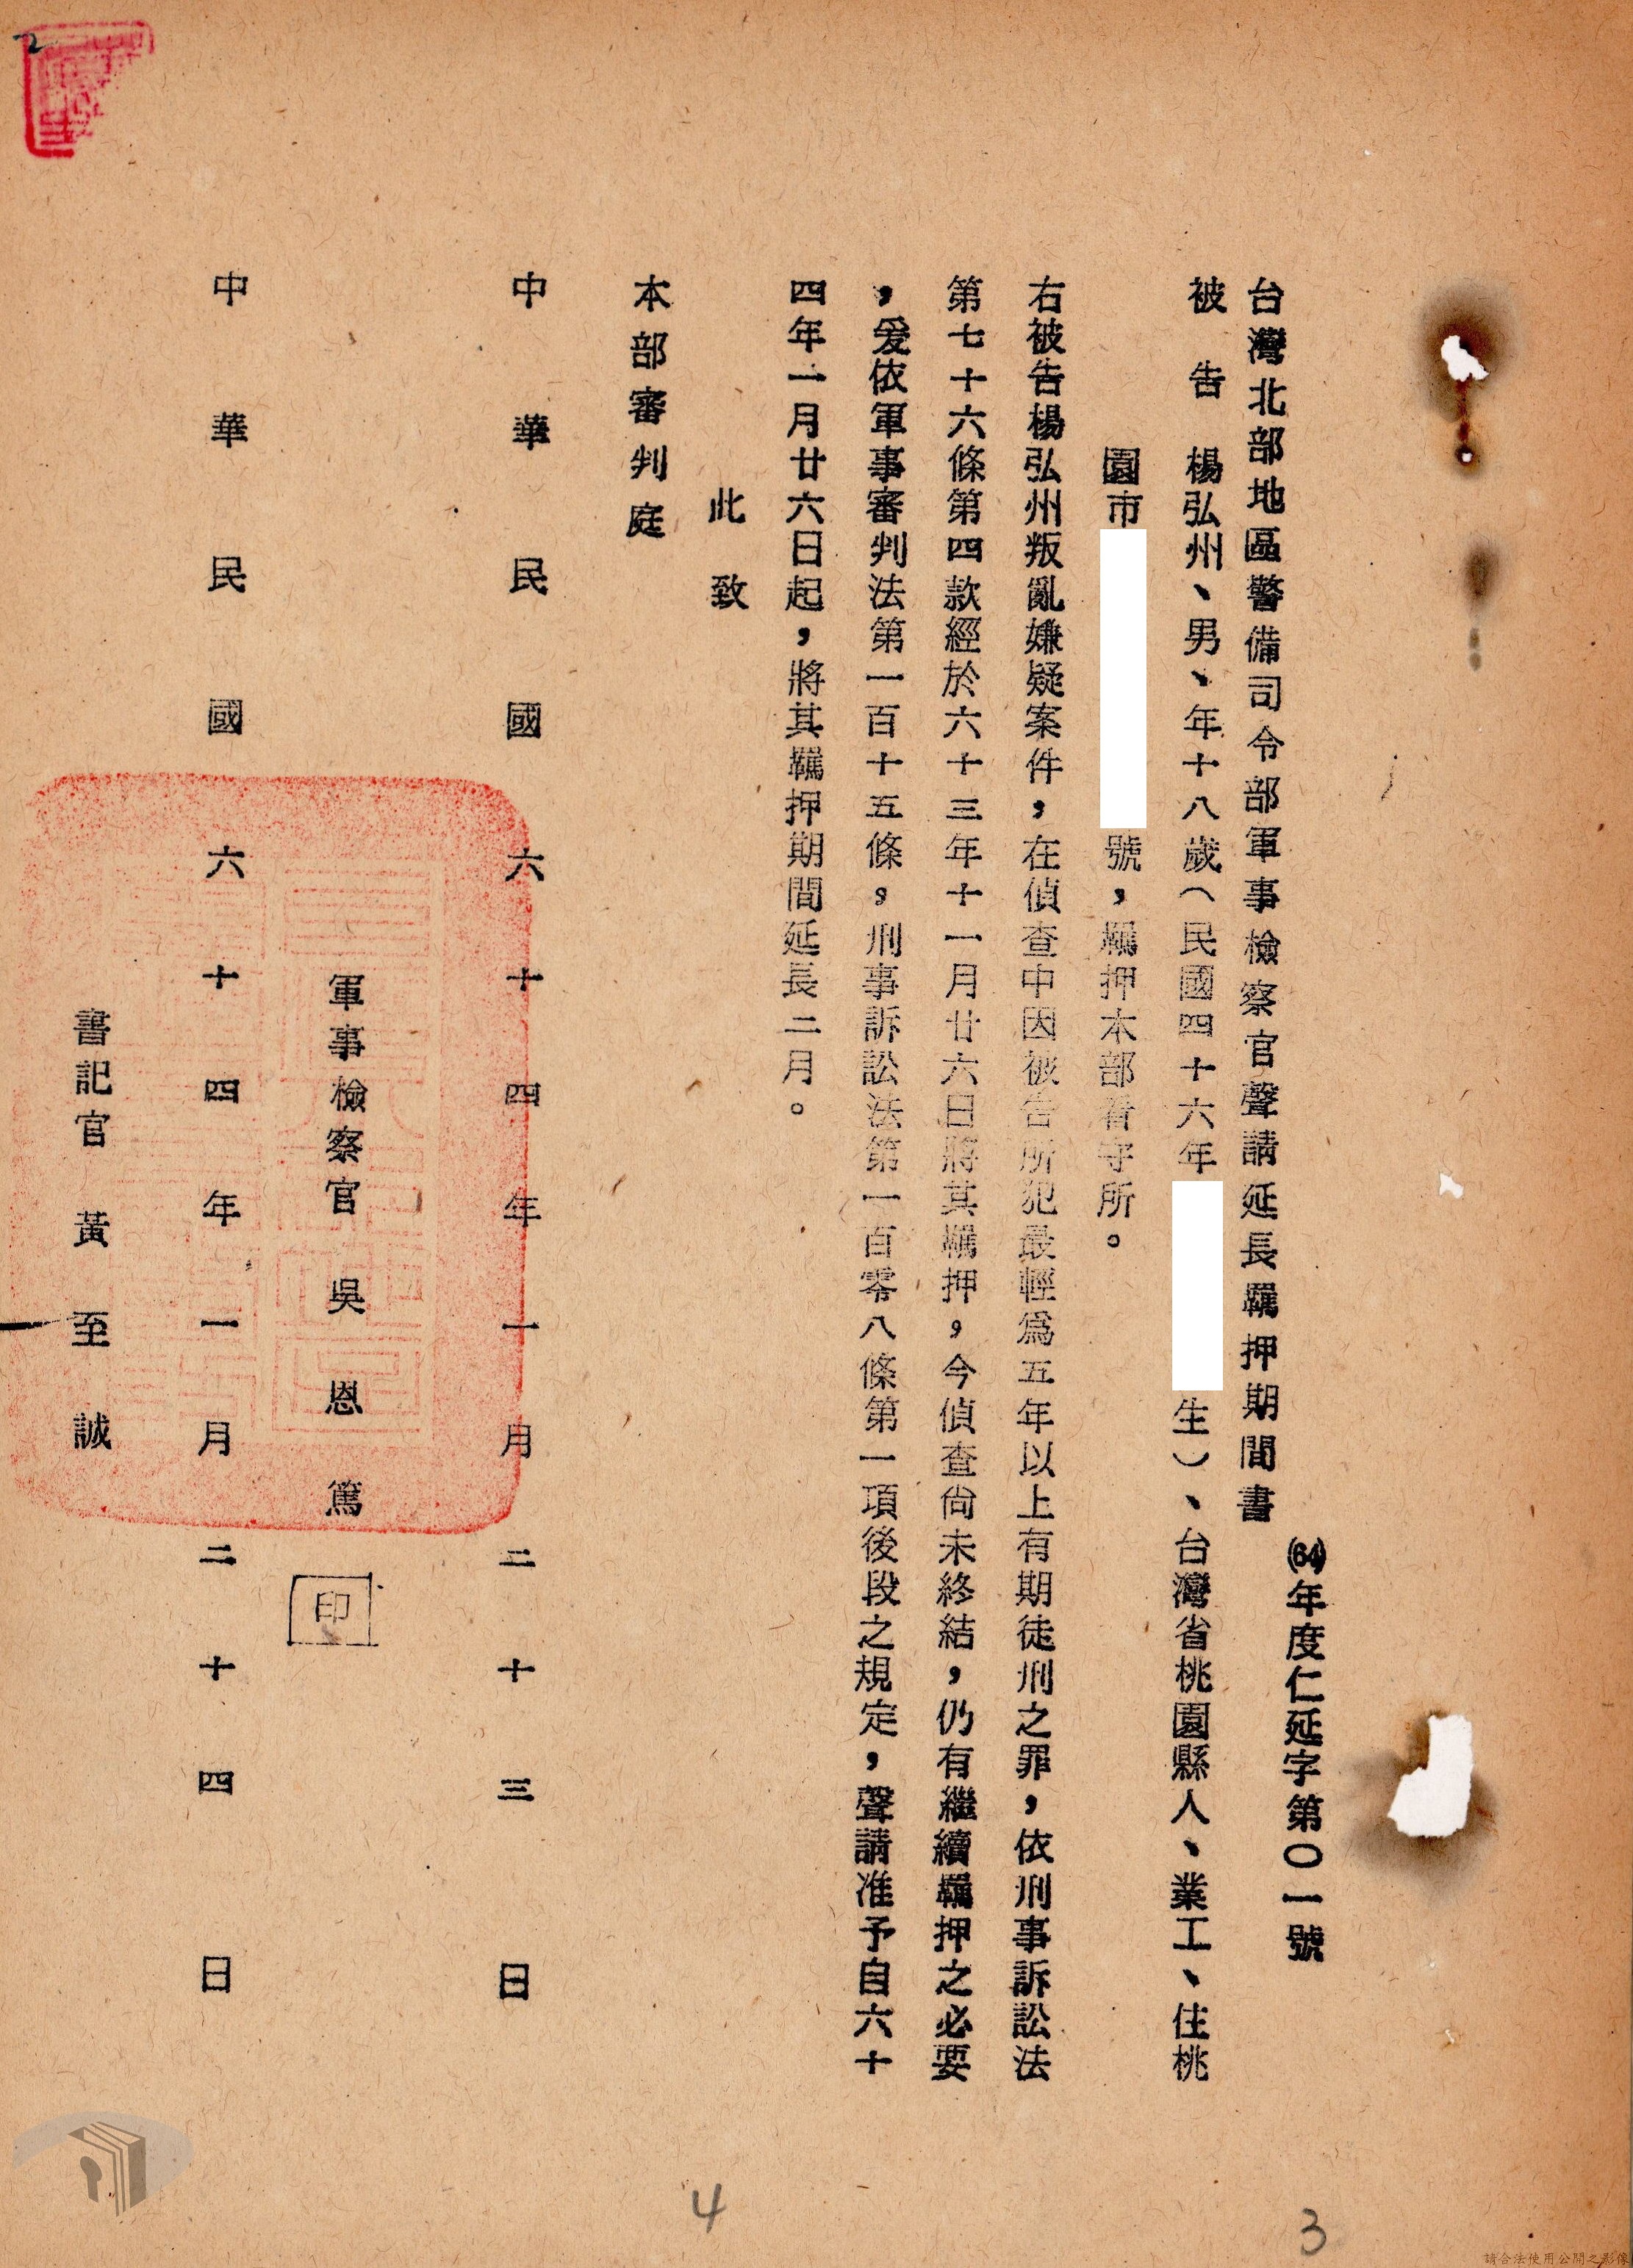 台灣北部地區警備司令部軍事檢察官聲請延長羈押期間書
(64)年度仁延字第〇一號
被告 楊弘州、男、年十八歲(民國四十六年 生)、台灣省桃園縣人、業工、住桃
園市 號,羈押本部看守所。
右被告楊弘州叛亂嫌疑案件,在偵查中因被告所犯最輕為五年以上有期徒刑之罪,依刑事訴訟法
第七十六條第四款經於六十三年十一月廿六日將其羈押,今偵查尚未終結,仍有繼續羈押之必要
,爰依軍事審判法第一百十五條,刑事訴訟法第一百零八條第一項後段之規定,聲請准予自六十
四年一月廿六日起,將其羈押期間延長二月。
此致
本部審判庭
中華民國六十四年一月二十三日
軍事檢察官 吳恩篤 印
中華民國六十四年一月二十四日
書記官 黃至誠
4
3
請合法使用公開之影像